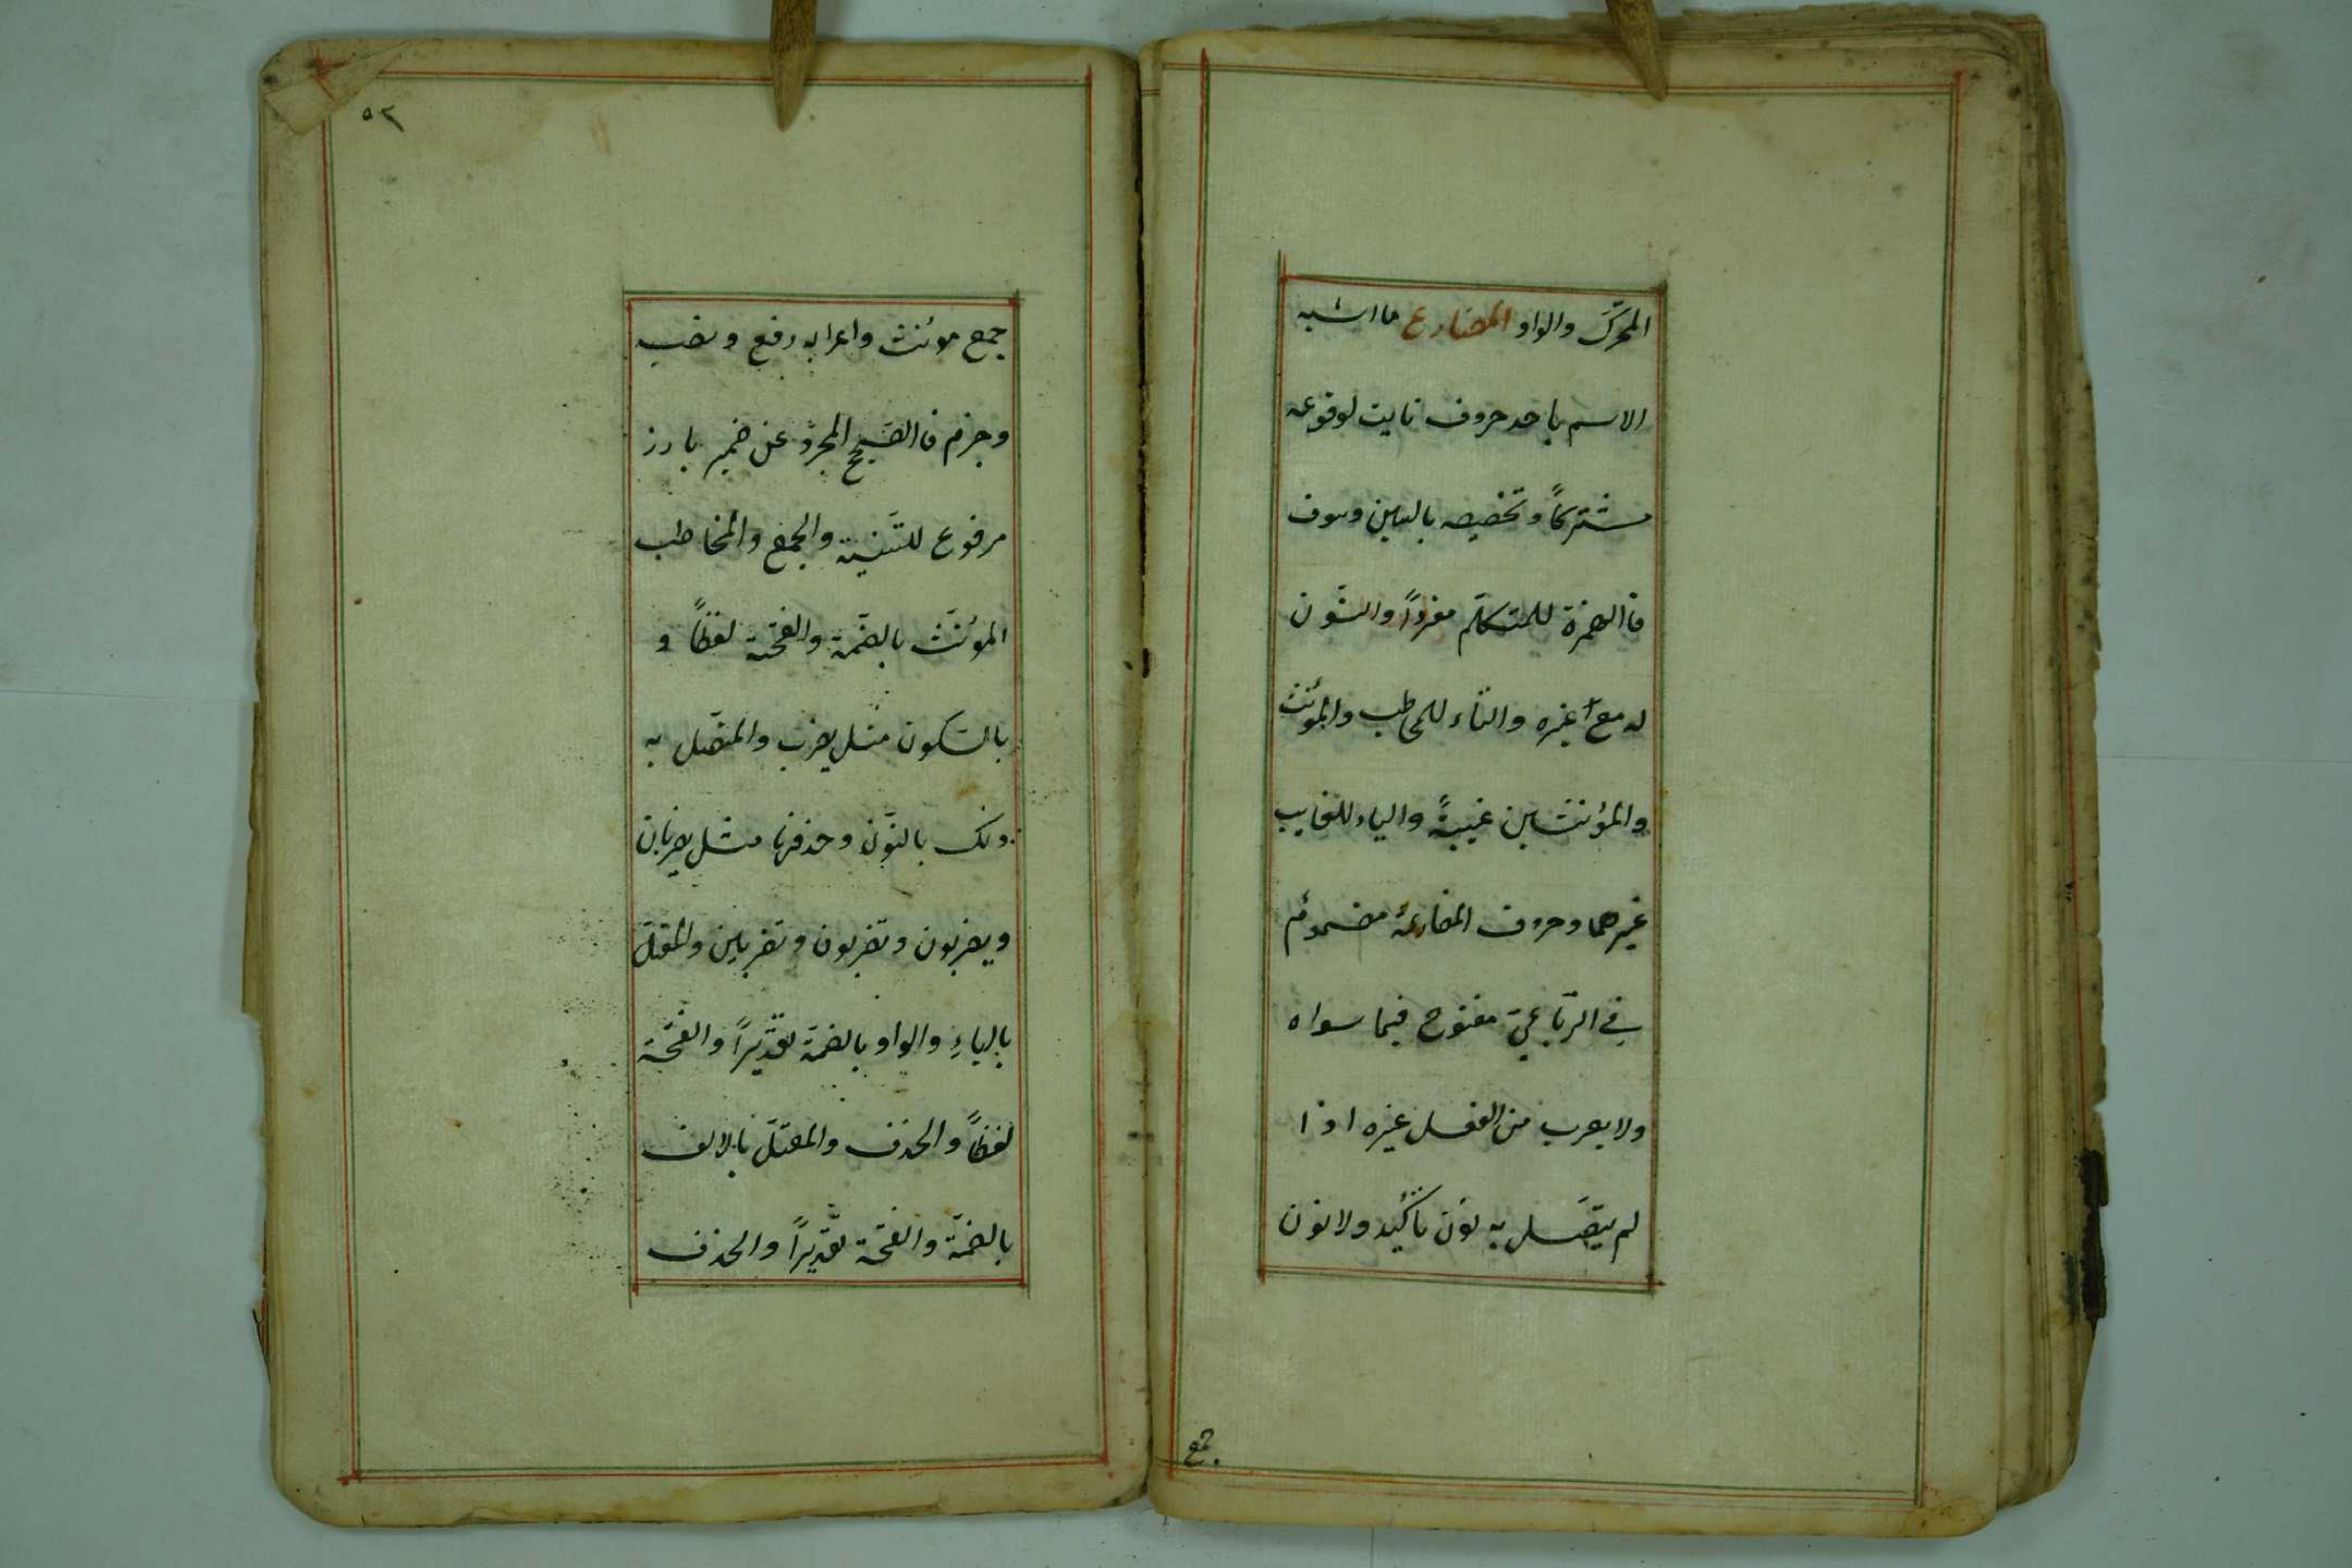 المحرّك والواو المضارع ما اشبه
الاسم باحد حروف نايت لوقوعه
مشتركاً وتخصيصه بالسين وسوف
فا الهمزة للمتكلّم مفرداً والنّون
له مع غيره والتاء للمخاطب والمؤنث
والمؤنثين غيبةً والياء للغايب
غيرهما وحروف المضارعة مضموم
في الرّباعيّ مفتوح فيما سواه
ولا يعرب من الفعل غيره اذا
لم يتّصل به نون تأكيد ولا نون
جمع
٥٢
جمع مؤنث واعرابه رفع ونصب
وجزم فا الصّحيح المجرّد عن ضمير بارز
مرفوع للتّثنية والجمع والمخاطب
المؤنّث بالضّمة والفتحة لفظاً و
بالسّكون مثل يضرب والمتّصل به
ذلك بالنّون وحذفها مثل يضربان
ويضربون وتضربون وتضربين والمعتلّ
بالياءِ والواو بالضمّة تقديراً والفتحة
لفظاً والحذف والمعتلّ بالالف
بالضمّة والفتحة تقديراً والحذف